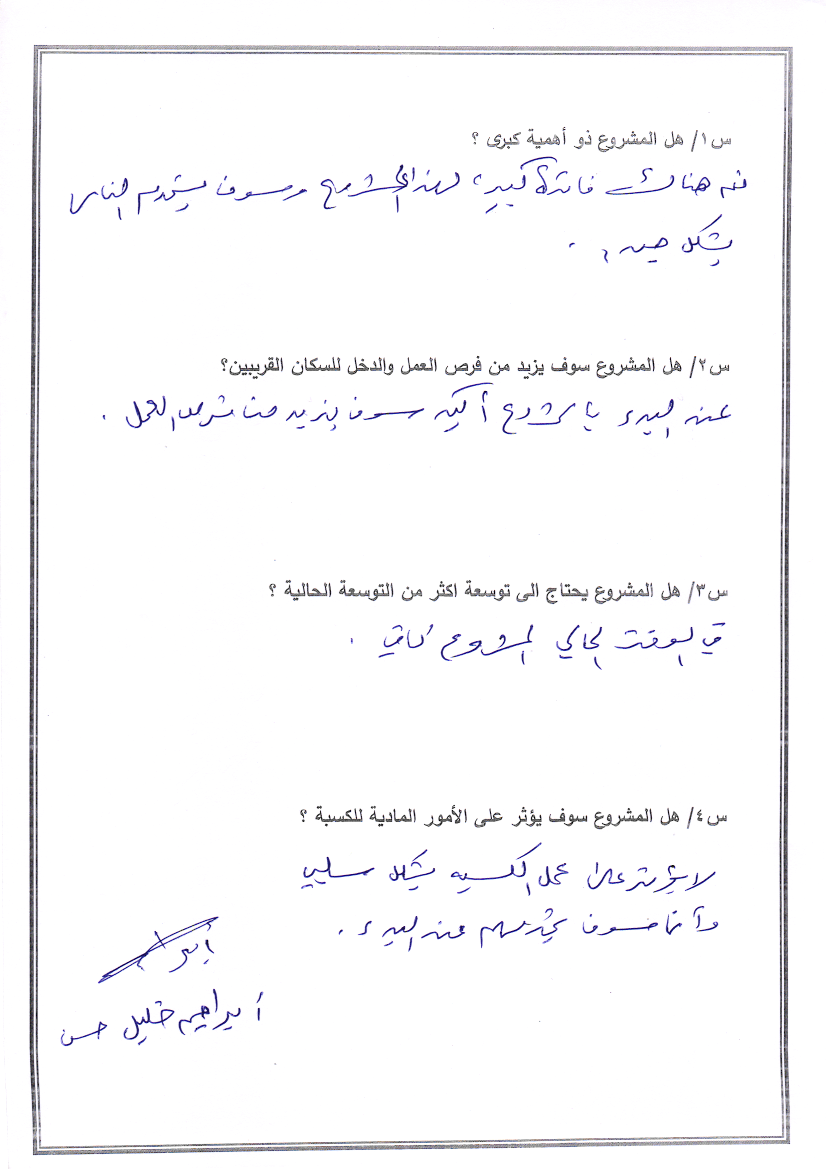 س١/ هل المشروع ذو أهمية كبرى ؟
نعم هناك فائدة كبيرة لهذا المشروع وسوف يخدم الناس
بشكل جيد .
س٢/ هل المشروع سوف يزيد من فرص العمل والدخل للسكان القريبين؟
عند البدء بالمشروع أكيد سوف يزيد من فرص العمل .
س٣/ هل المشروع يحتاج الى توسعة اكثر من التوسعة الحالية ؟
في الوقت الحالي المشروع كافي .
س٤/ هل المشروع سوف يؤثر على الأمور المادية للكسبة ؟
لا يؤثر على عمل الكسبه بشكل سلبي
وأنما سوف يخدمهم عند البدء .
أبراهيم خليل حسن